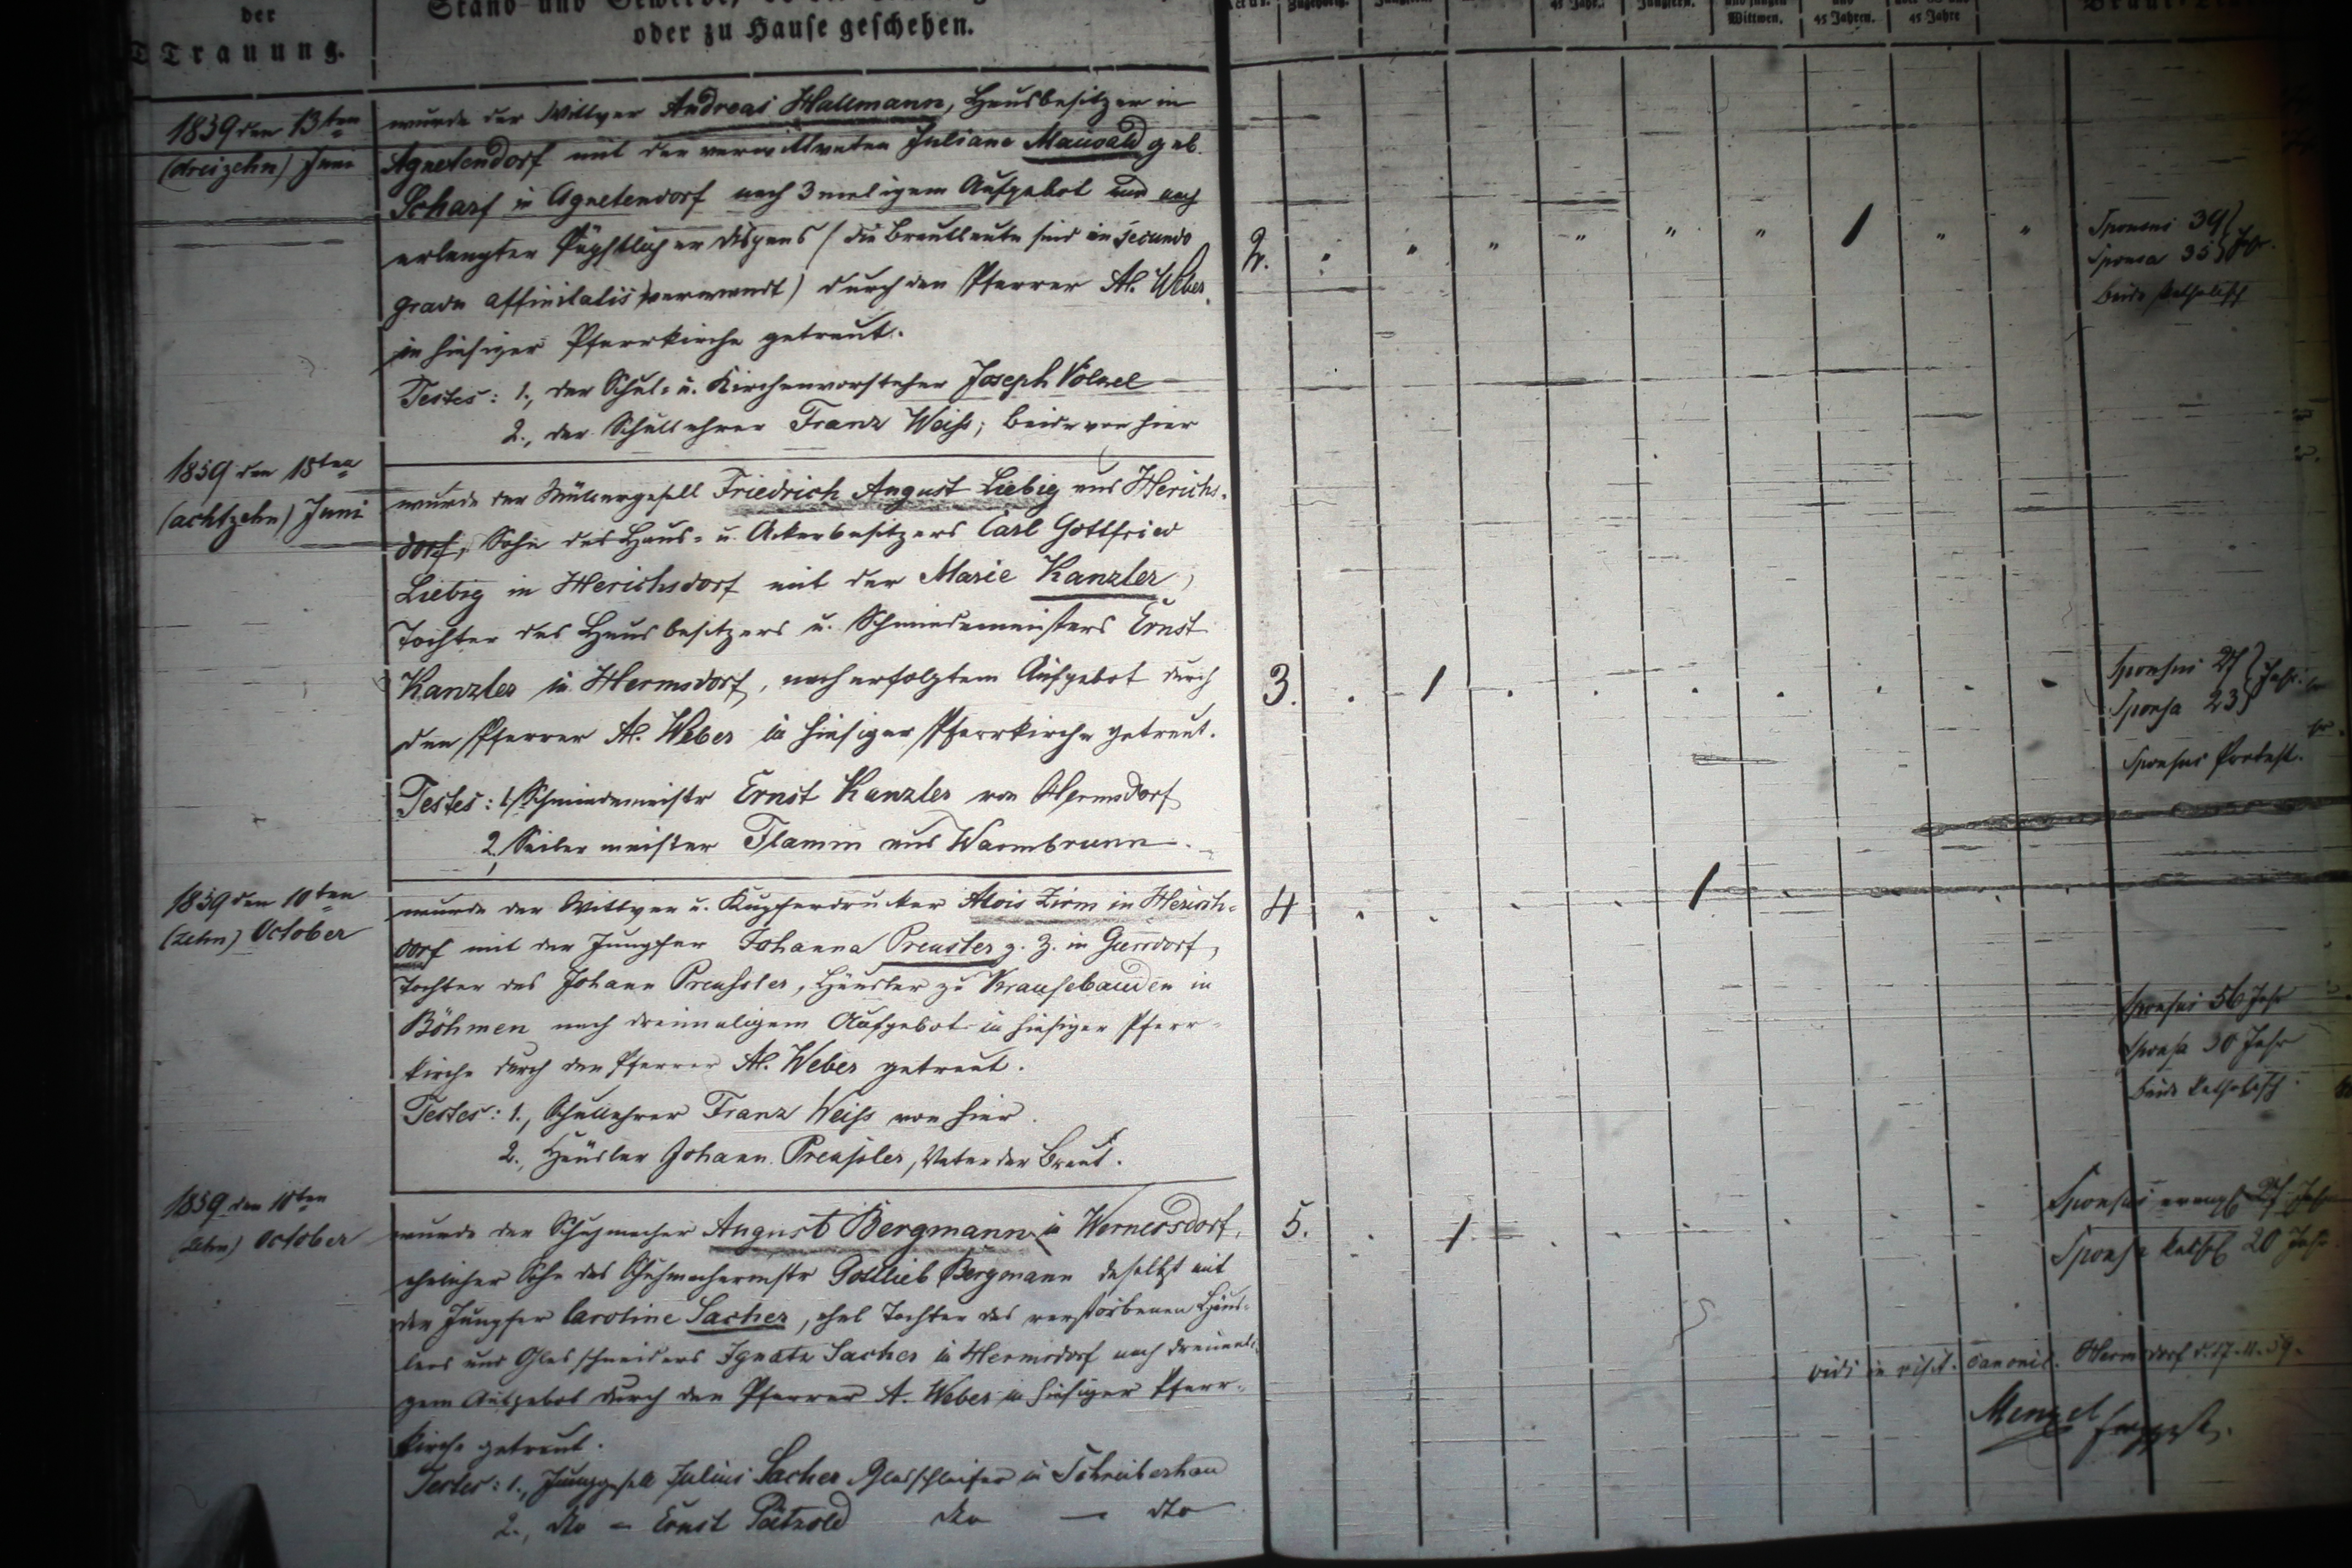 der
Trauung.
Stand und Gewerbe,
oder zu Hause geschehen.
45 Jahr.
Jungfern.
Wittwen.
und
45 Jahren.
45 Jahre
1859 den 13ten
(dreizehn) Juni
wurde der Wittwer Andreas Hallmann, Hausbesitzer in
Agnetendorf mit der verwittweten Juliane Maiwald geb.
Scharf in Agnetendorf nach 3maligem Aufgebot und nach
erlangter Päpstlicher Dispens (die Brautleute sind in secundo
gradu affinitatis verwandt) durch den Pfarrer Al. Weber
in hiesiger Pfarrkirche getraut.
Testes: 1., der Schul- u. Kirchenvorsteher Joseph Völkel
2., der Schullehrer Franz Weiß; beide von hier
2. " " " " " " 1 " "
Sponsus 39
Sponsa 35 Jahr.
beide katholisch
1859 den 18ten
(achtzehn) Juni
wurde der Müllergesell Friedrich August Liebig aus Herichs-
dorf, Sohn des Haus- u. Ackerbesitzers Carl Gottfried
Liebig in Herichsdorf mit der Marie Kanzler,
Tochter des Hausbesitzers u. Schmiedemeisters Ernst
Kanzler in Hermsdorf, nach erfolgtem Aufgebot durch
den Pfarrer Al. Weber in hiesiger Pfarrkirche getraut.
Testes: 1, Schmiedemeistr Ernst Kanzler von Hermsdorf
2, Seilermeister Flamm aus Warmbrunn.
3. . 1 . . . . . . .
Sponsus 27
Sponsa 23 Jahr.
Sponsus Protest.
1859 den 10ten
(zehn) October
wurde der Wittwer u. Kupferdrucker Alois Zirm in Herisch-
dorf mit der Jungfer Johanna Preusler z. Z. in Giersdorf,
Tochter des Johann Preussler, Häusler zu Krausebauden in
Böhmen nach dreimaligem Aufgebot in hiesiger Pfarr-
kirche durch den Pfarrer Al. Weber getraut.
Testes: 1., Schullehrer Franz Weiß von hier.
2., Häusler Johann Preußler, Vater der Braut.
4 . . . . 1 . . . .
Sponsus 56 Jahr
Sponsa 30 Jahr
beide katholisch.
1859 den 10ten
(zehn) October
wurde der Schuhmacher August Bergmann in Wernersdorf,
ehelicher Sohn des Schuhmachermstr Gottlieb Bergmann daselbst mit
der Jungfer Caroline Sacher, ehel Tochter des verstorbenen Häus-
lers und Glasschneiders Ignatz Sacher in Hermsdorf nach dreimali-
gem Aufgebot durch den Pfarrer A. Weber in hiesiger Pfarr-
kirche getraut.
Testes: 1., Junggesell Julius Sacher Glasschleifer in Schreiberhau
2., dto - Ernst Pätzold dto - dto
5. . 1 . . . . . .
Sponsus evangl 27 Jahr
Sponsa kathol 20 Jahr
vidi in visit. canonic. Hermsdorf d. 17.11.59.
Menzel